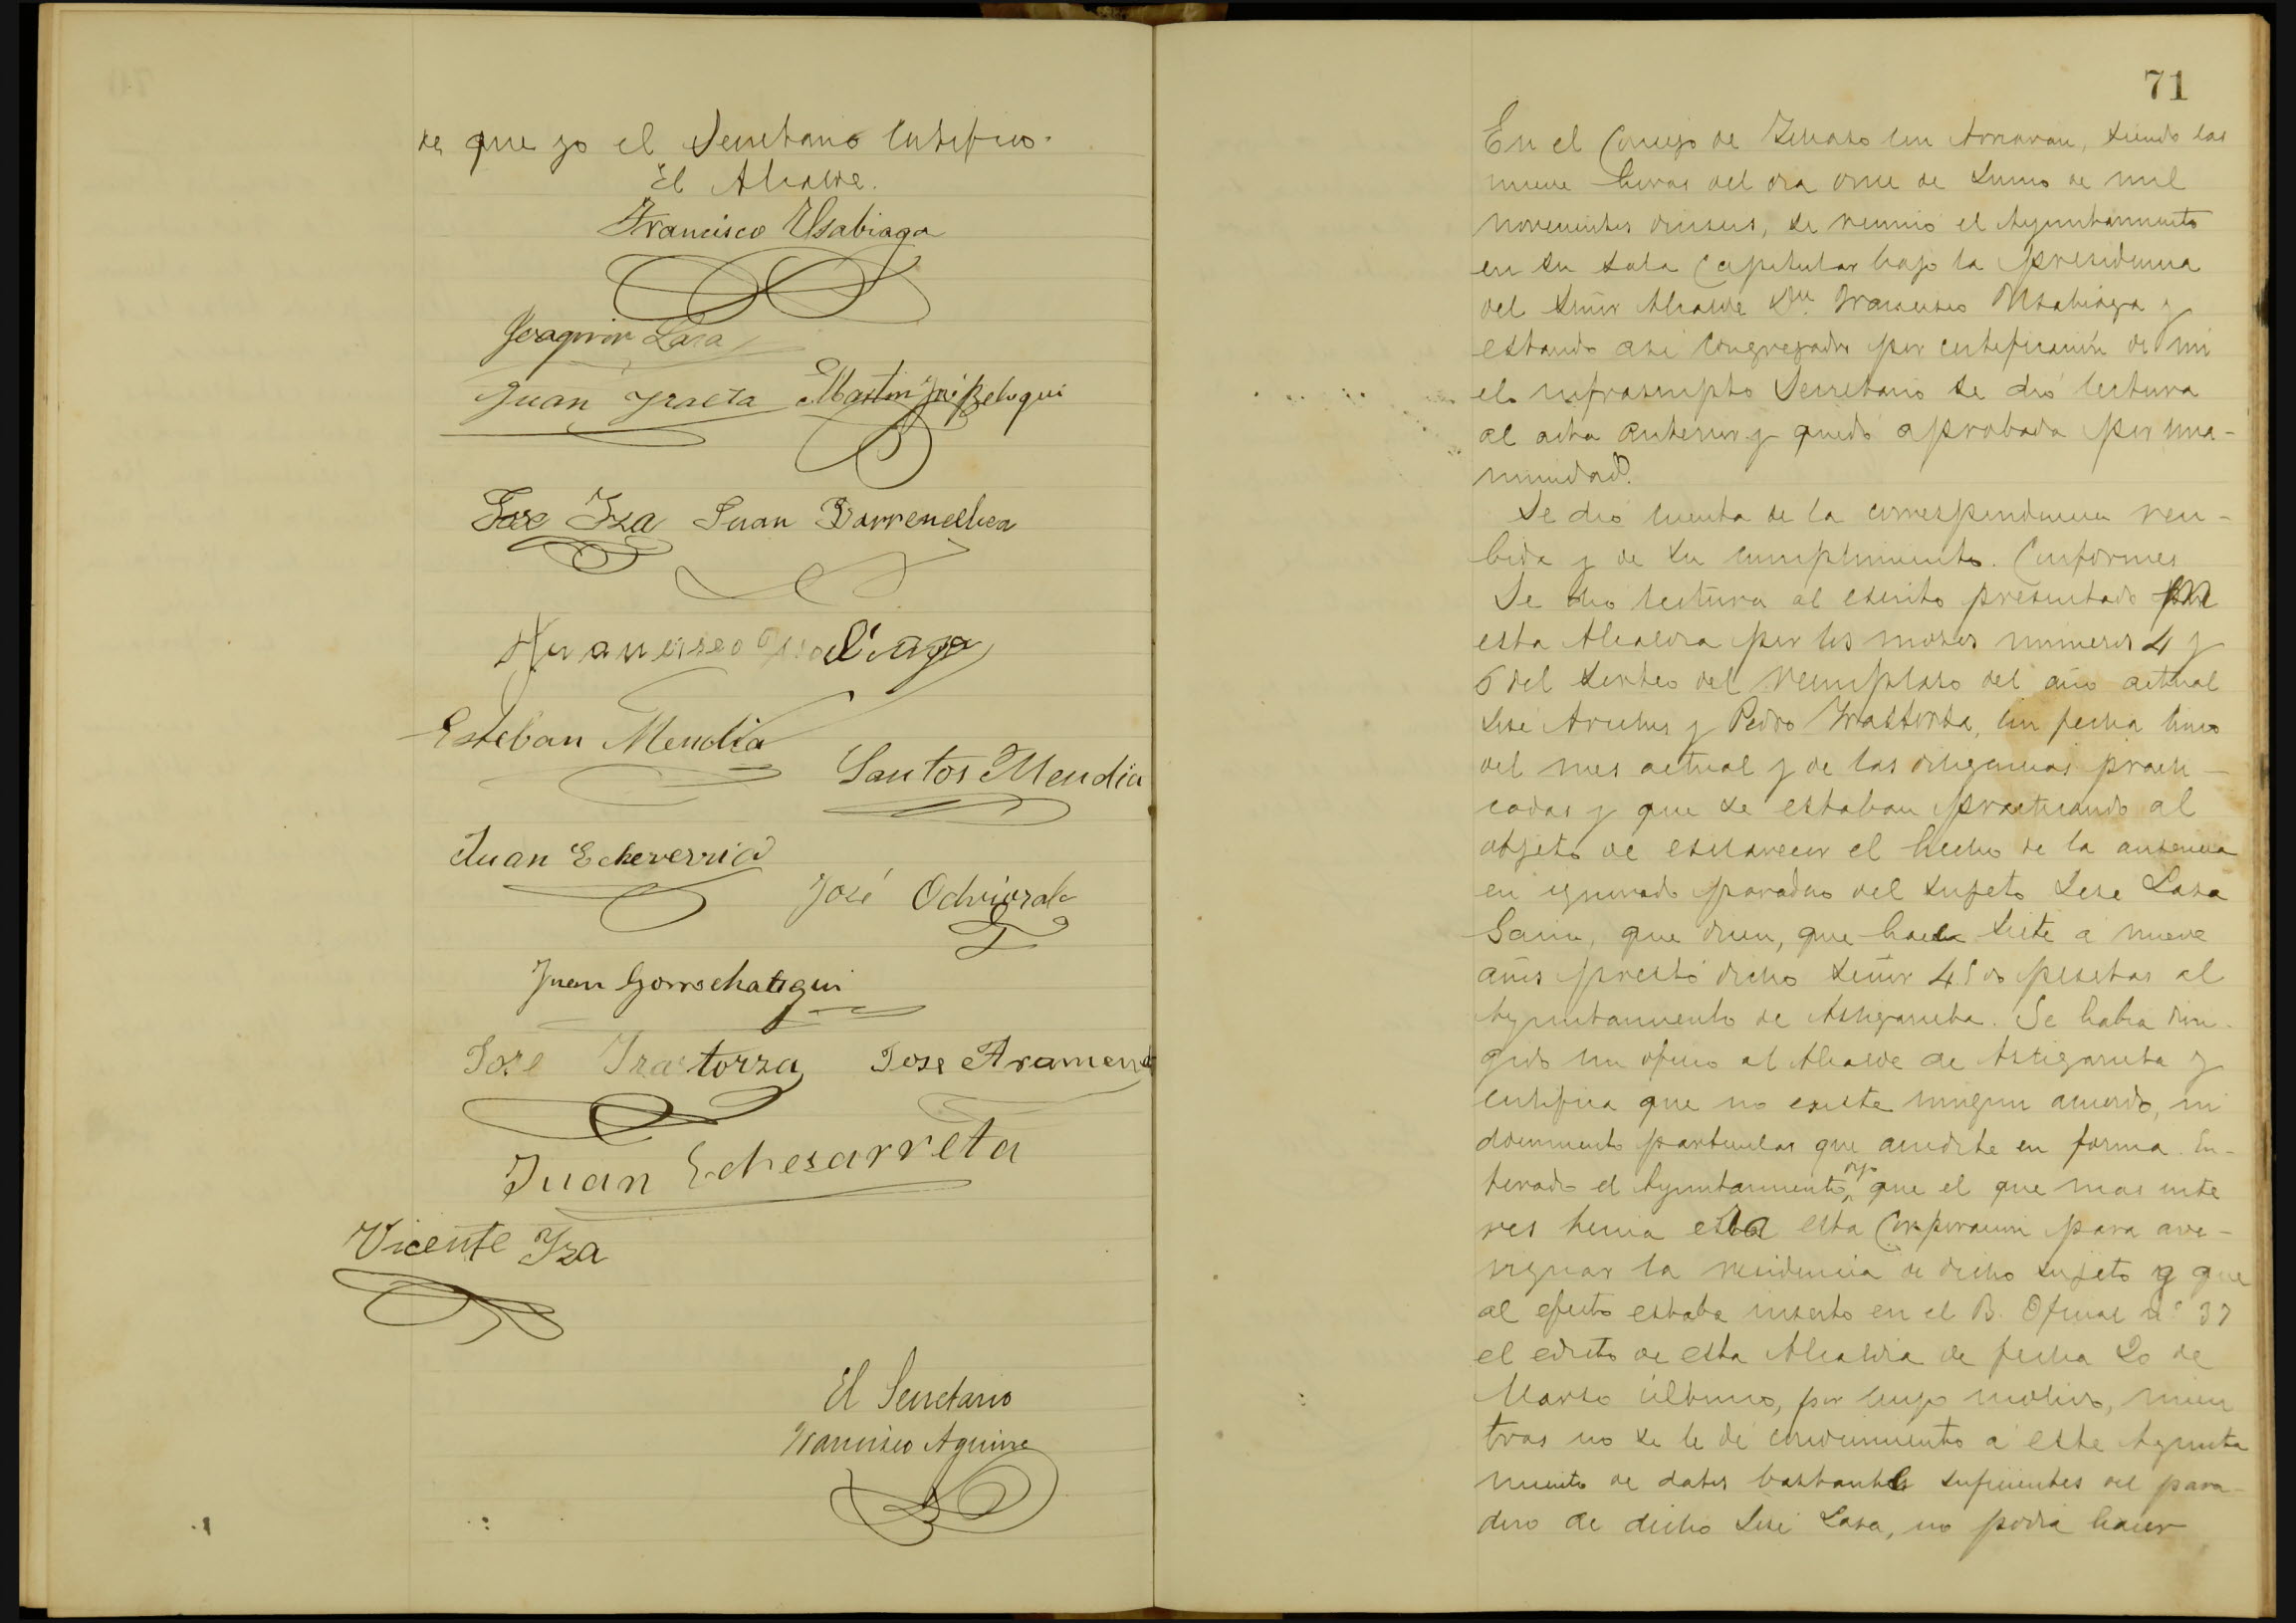 de que yo el Secretario Certifico.
El Alcalde.
Francisco Usabiaga
Joaquin Lasa
Juan Iraeta Martin José Beloqui
Jose Iza Juan Barrenechea
Francisco
Esteban Mendia
Santos Mendia
Juan Echeverria
José Odriozola
Juan Gorrochategui
Jose Irastorza Jose Aramendi
Juan Echesarreta
Vicente Iza
El Secretario
Francisco Aguirre
71
En el Concejo de Ichaso con Arriaran, siendo las
nueve horas del dia once de Junio de mil
novecientos dieciseis, se reunió el Ayuntamiento
en su sala Capitular bajo la presidencia
del Señor Alcalde Dn. Francisco Usabiaga y
estando asi congregados por certificación de mi
el infrascripto Secretario se dió lectura
al acta anterior y quedó aprobada por una-
nimidad.
Se dió cuenta de la correspondencia reci-
bida y de su cumplimiento. Conformes
Se dio lectura al escrito presentado
esta Alcaldia por los mozos numeros 4 y
6 del sorteo del reemplazo del año actual
José y Pedro Irastorza, con fecha cinco
del mes actual y de las diligencias practi-
cadas y que se estaban practicando al
objeto de esclarecer el hecho de la ausencia
en ignorado paradero del sujeto José Lasa
que dicen, que hace siete á nueve
años prestó dicho Señor 4500 pesetas al
Ayuntamiento de Astigarreta. Se habia diri-
gido un oficio al Alcalde de Astigarreta y
certifica que no existe ningun acuerdo, ni
documento particular que acredite en forma. En-
terado el Ayuntamiento, dijo que el que mas inte
res tenia esta Corporación para ave-
riguar la residencia de dicho sujeto y que
al efecto estaba inserto en el B. Oficial nº 37
el edicto de esta Alcaldia de fecha 20 de
Marzo último, por cuyo motivo, mien
tras no se le dé conocimiento á este Ayunta
miento de datos bastantes suficientes del para-
dero de dicho José Lasa, no podía hacer